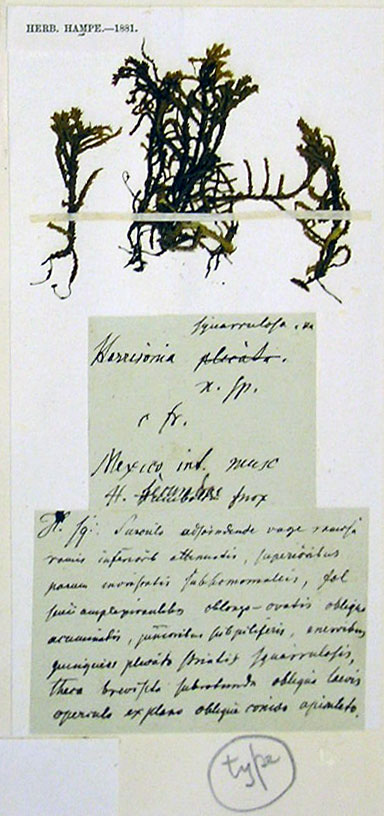 HERB. HAMPE.—1881.
squarrulosa
Harrisonia plicata.
n. sp.
c fr.
Mexico int. musc
H. sq: Surculo adscendente vage ramosa
ramis inferiorib attenuatis, superioribus
parum incrassatis subhomomaleis, fol
semiamplexicaulibs oblongo-ovatis oblique
acuminatis, junioribus subpiliferis, enervibus
plicato striatis squarrulosis,
theca brevipeds subrotunda obliqua laevis
operculo explano oblique conico apiculato.
type